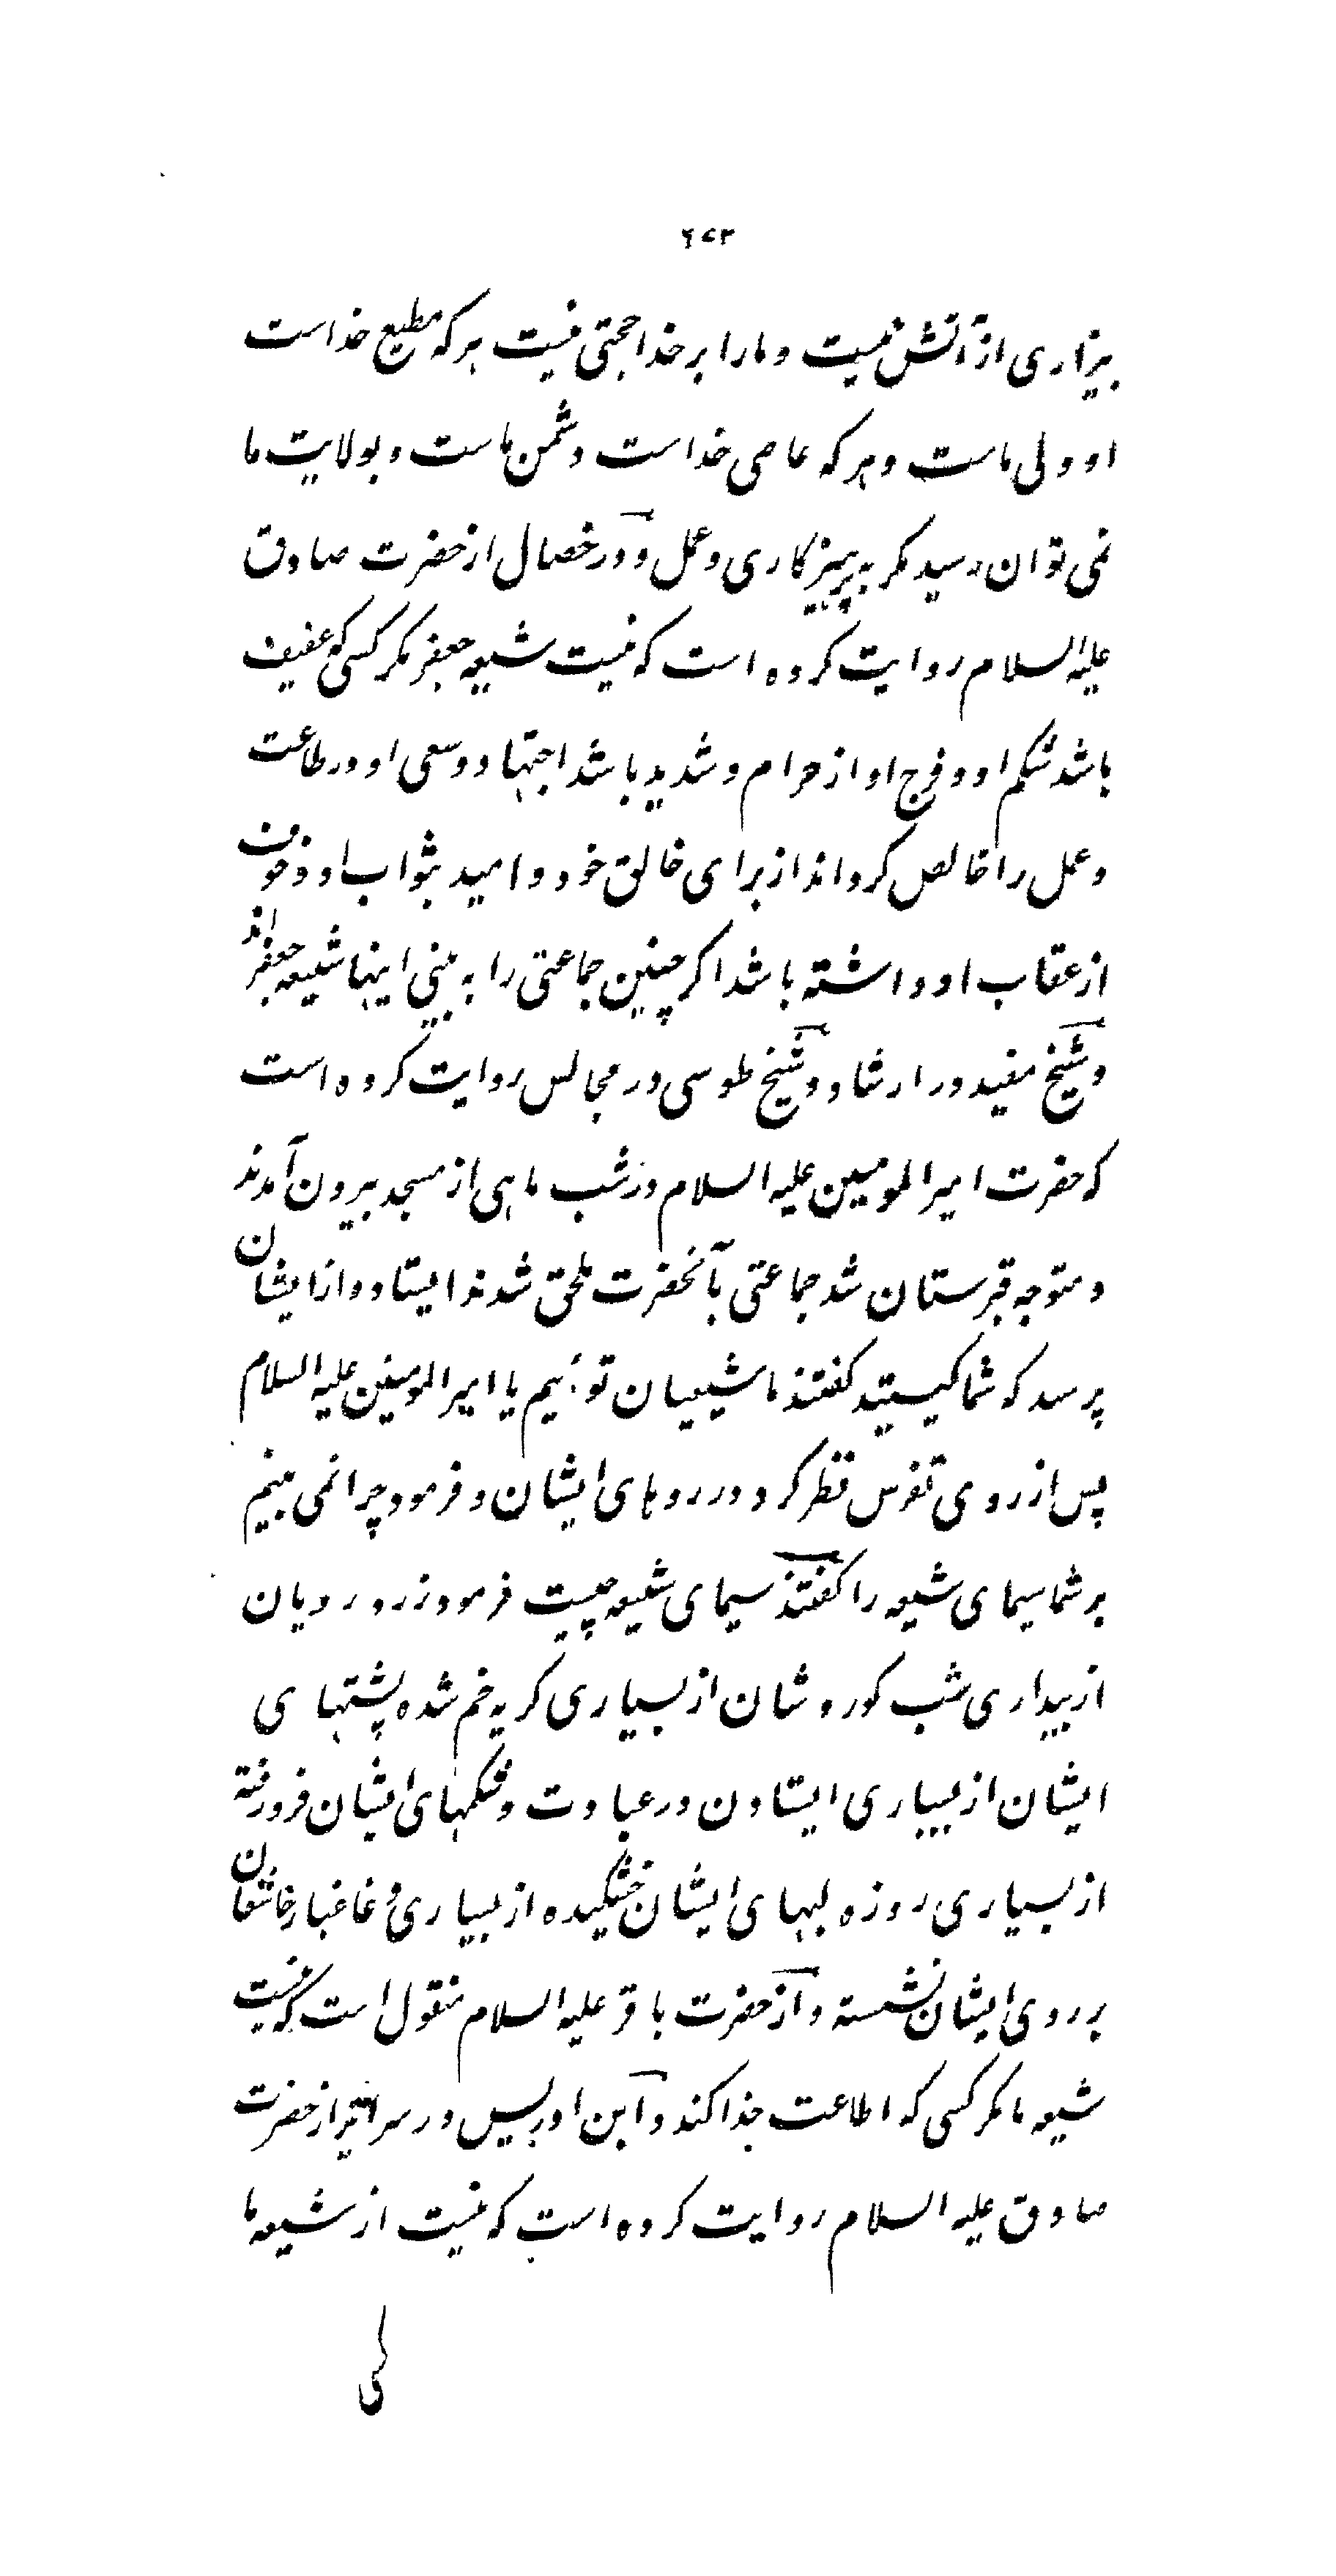 ۶۷۳
بیزاری از آتش نیست و ما را بر خدا حجتی نیست هر که مطیع خداست
او ولی ماست و هر که عاصی خداست دشمن ماست و بولایت ما
نمی توان رسید مکر به پرهیزکاری و عمل و در خصال از حضرت صادق
علیه السلام روایت کرده است که نیست شیعه جعفر مکر کسی که عفیف
باشد شکم او و فرج او از حرام و شدید باشد اجتهاد و سعی او در طاعت
و عمل را خالص کرداند از برای خالق خود و امید بثواب او و خوف
از عقاب او داشته باشد اکر چنین جماعتی را به بینی اینها شیعه جعفر اند
و شیخ مفید در ارشاد و شیخ طوسی در مجالس روایت کرده است
که حضرت امیر المومنین علیه السلام در شب ماهی از مسجد بیرون آمدند
و متوجه قبرستان شد جماعتی بآنحضرت ملحق شدند ایستاد و از ایشان
پرسد که شما کیستید کفتند ما شیعیان توئیم یا امیر المومنین علیه السلام
پس از روی تفرس نظر کرد در روهای ایشان و فرمود چرا نمی بینم
بر شما سیمای شیعه را کفتند سیمای شیعه چیست فرمود زرد رویان
از بیداری شب کور و شان از بسیاری کریه خم شده پشتهای
ایشان از بسیاری ایستادن در عبادت و شکمهای ایشان فرو رفته
از بسیاری روزه لبهای ایشان خشکیده از بسیاری دعا غبار خاشعان
بر روی ایشان نشسته و از حضرت باقر علیه السلام منقول است که نیست
شیعه ما مکر کسی که اطاعت خدا کند و ابن ادریس در سرائر از حضرت
صادق علیه السلام روایت کرده است که نیست از شیعه ما